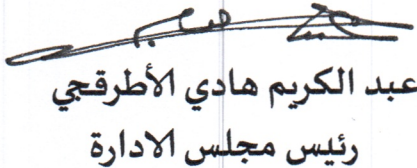 عبد الكريم هادي الأطرقجي
رئيس مجلس الادارة